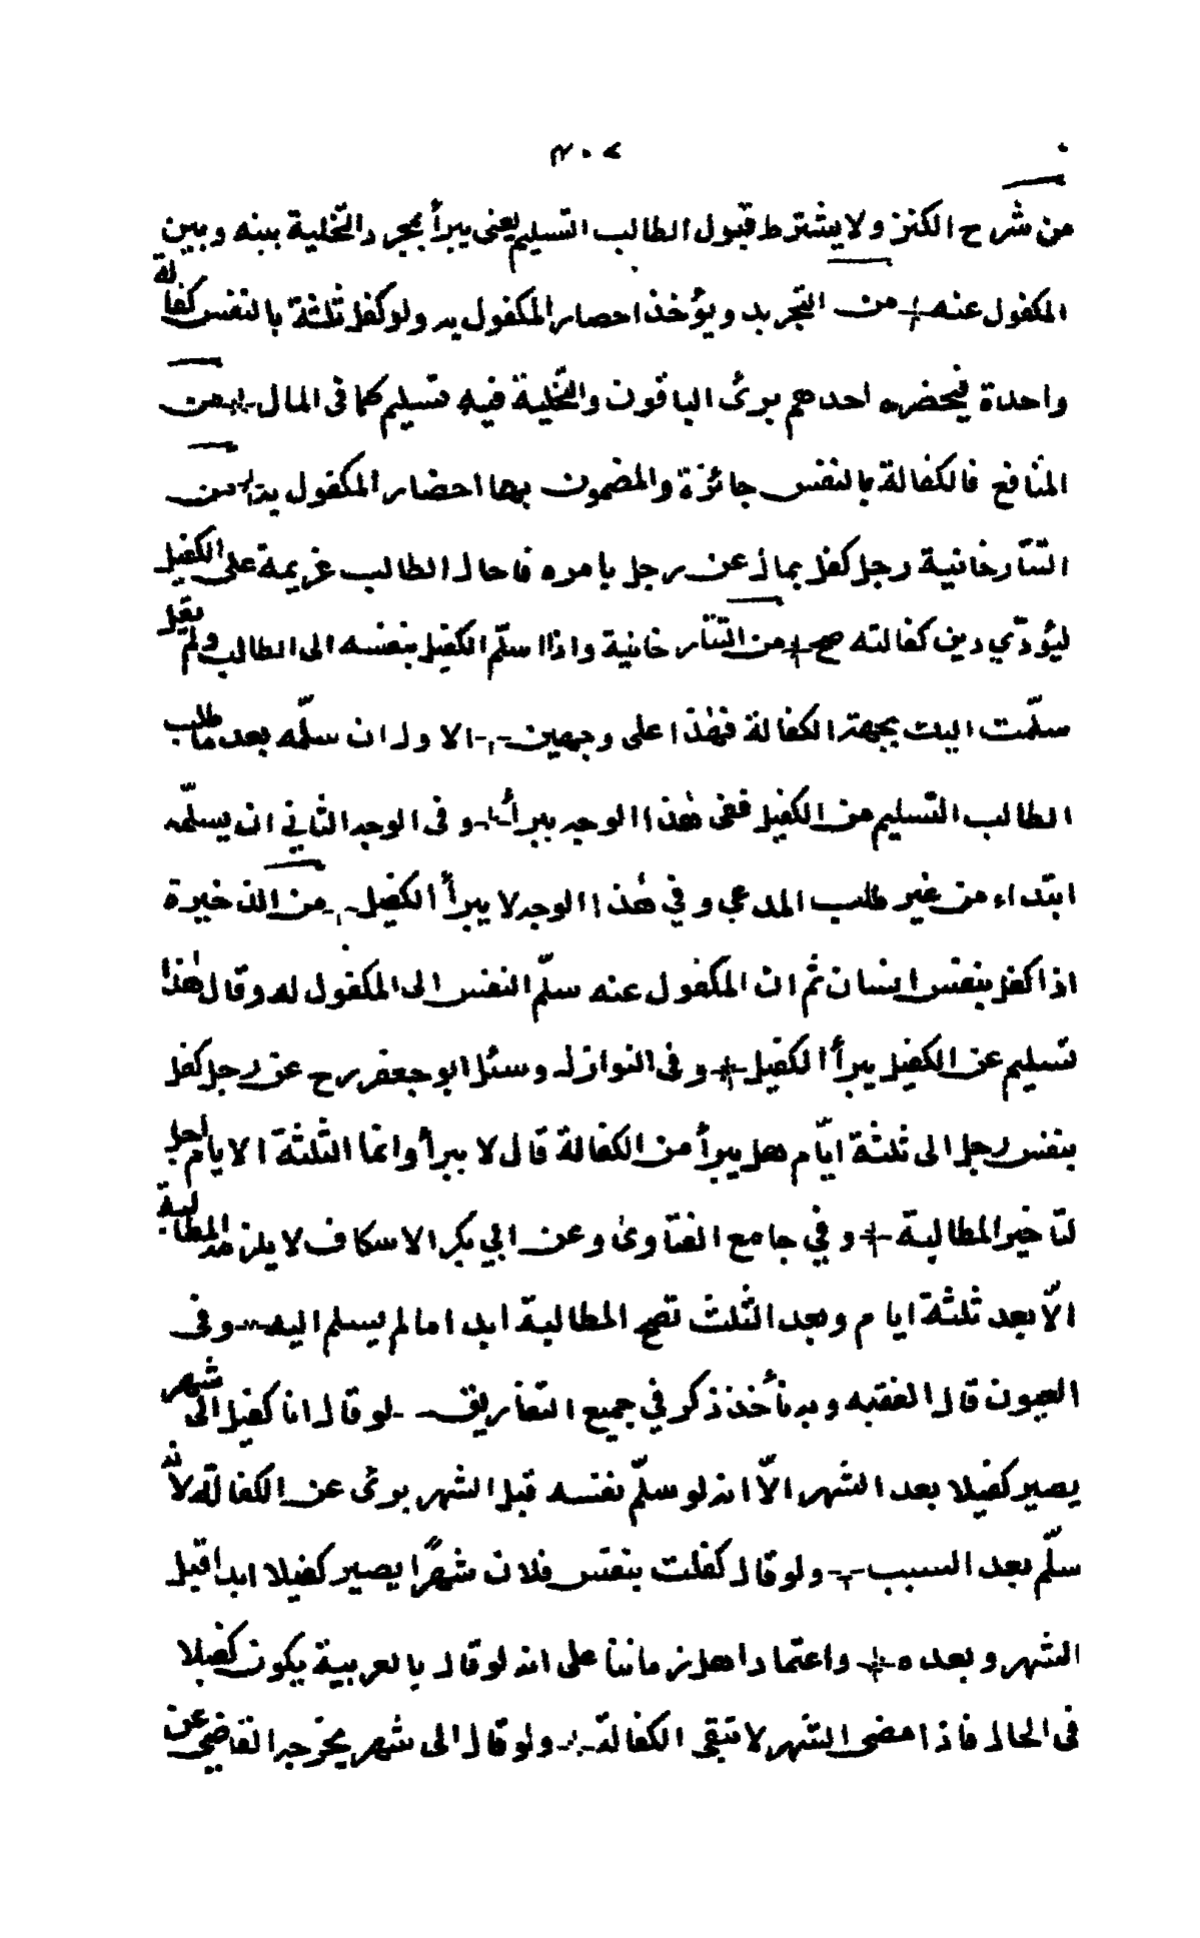 من شرح الكنز ولا يشترط قبول الطالب التسليم يعنى يبرأ بمجرد التخلية بينه وبين
المكفول عنه من التجريد ويؤخذ احضار المكفول به ولو كفل ثلثة بالنفس كفالة
واحدة فيحضره احدهم برئ الباقون والتخلية فيه تسليم كما فى المال من
المنافع فالكفالة بالنفس جائزة والمضمون بها احضار المكفول به من
التتارخانية رجل كفل بمال عن رجل بامره فاحال الطالب غريمة على الكفيل
ليؤدّي دين كفالته صح من التتارخانية واذا سلّم الكفيل بنفسه الى الطالب ولم يقل
سلّمت اليك بجهة الكفالة فهٰذا على وجهين الاول ان سلّمه بعد ما طلب
الطالب التسليم من الكفيل ففى هٰذا الوجه يبرأ وفى الوجه الثاني ان يسلّمه
ابتداء من غير طلب المدعي وفي هٰذا الوجه لا يبرأ الكفيل من الذخيرة
اذا كفل بنفس انسان ثم ان المكفول عنه سلّم النفس الى المكفول له وقال هٰذا
تسليم عن الكفيل يبرأ الكفيل وفى النوازل وسئل ابو جعفر رح عن رجل كفل
بنفس رجل الى ثلثة ايّام هل يبرأ من الكفالة قال لا يبرأ وانما الثلثة الايام اجل
لتاخير المطالبة وفي جامع الفتاوىٰ وعن ابي بكر الاسكاف لا يلزمه المطالبة
الّا بعد ثلثة ايام وبعد الثلث تصح المطالبة ابدا ما لم يسلم اليه وفى
العيون قال الفقيه وبه نأخذ ذكر في جميع التفاريق لو قال انا كفيل الى شهر
يصير كفيلا بعد الشهر الّا انه لو سلّم نفسه قبل الشهر برئ عن الكفالة لانه
سلّم بعد السبب ولو قال كفلت بنفس فلان شهرًا يصير كفيلا ابدا قبل
الشهر وبعده واعتماد اهل زماننا على انه لو قال بالعربية يكون كفيلا
فى الحال فاذا مضى الشهر لا تبقى الكفالة ولو قال الى شهر يخرّجه القاضي عن